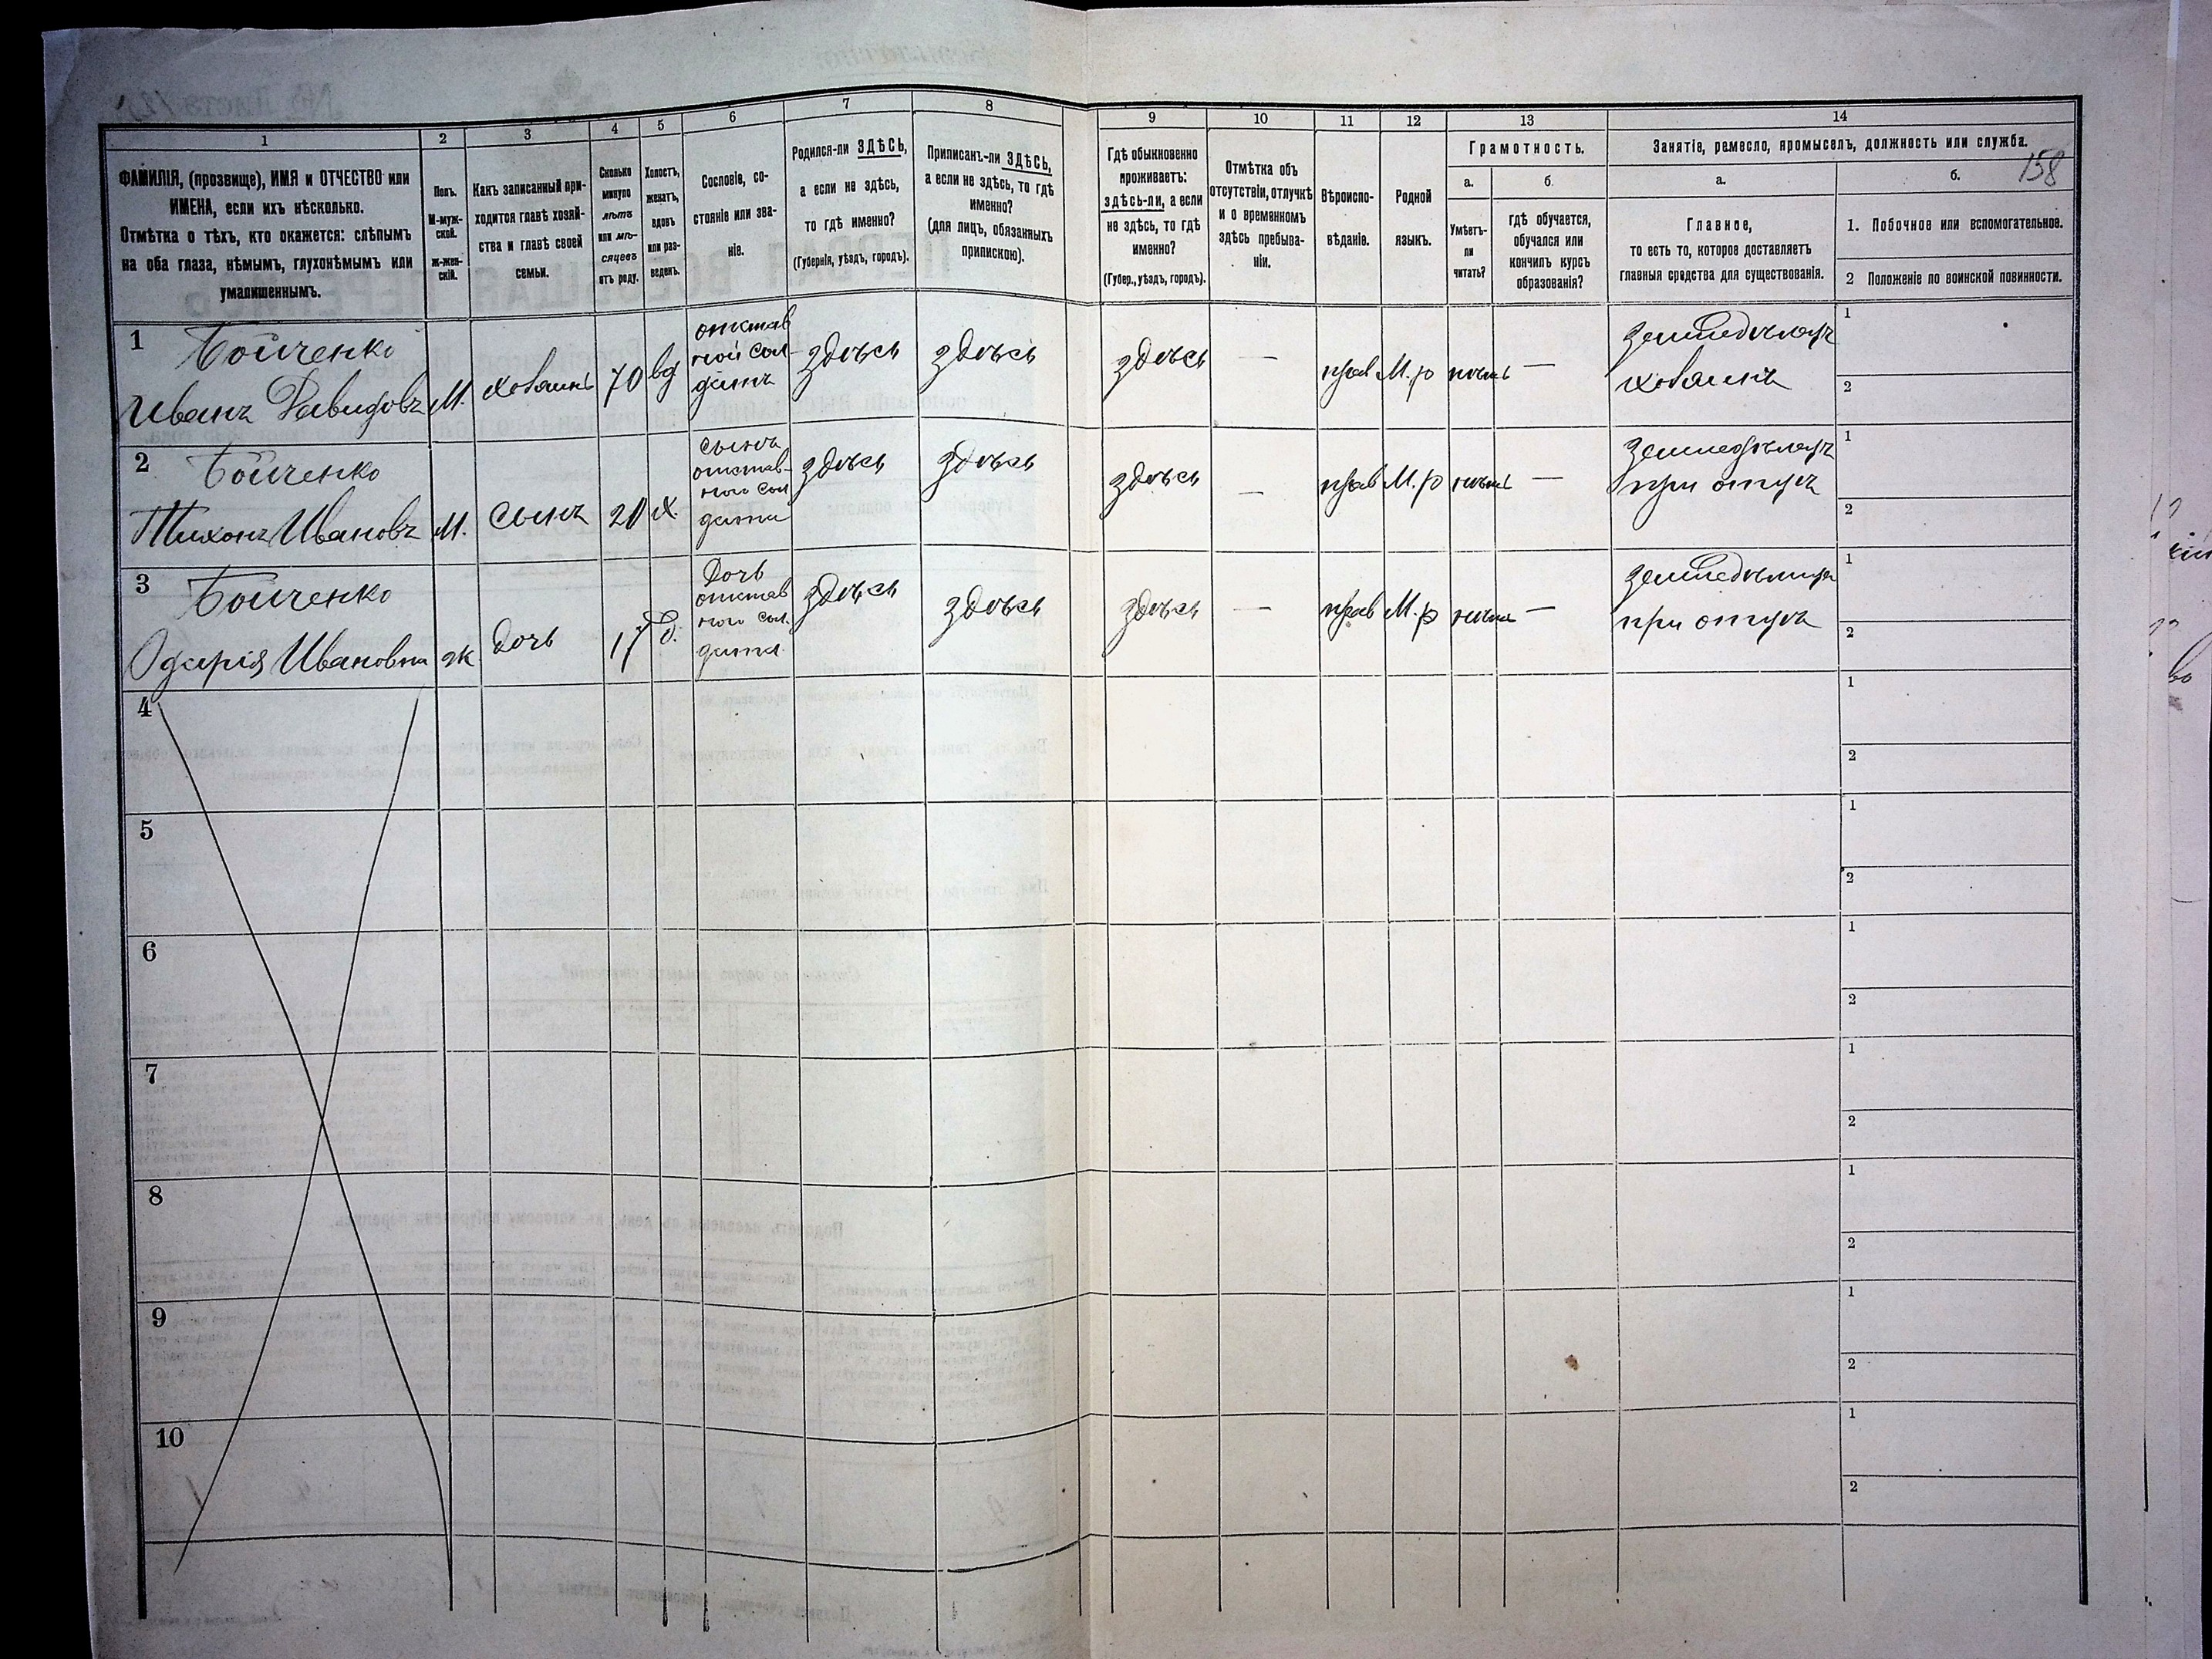 158
1 2 3 4 5 6 7 8 9 10 11 12 13 14
ФАМИЛІЯ, (прозвище), ИМЯ и ОТЧЕСТВО или
ИМЕНА, если ихъ нѣсколько.
Отмѣтка о тѣхъ, кто окажется: слѣпымъ
на оба глаза, нѣмымъ, глухонѣмымъ или
умалишеннымъ.
Полъ.
М-муж-
ской.
Ж-жен-
скій.
Какъ записанный при-
ходится главѣ хозяй-
ства и главѣ своей
семьи.
Сколько
минуло
лѣтъ
или мѣ-
сяцевъ
отъ роду.
Холостъ,
женатъ,
вдовъ
или раз-
веденъ.
Сословіе, со-
стояніе или зва-
ніе.
Родился-ли ЗДѢСЬ,
а если не здѣсь,
то гдѣ именно?
(Губернія, уѣздъ, городъ).
Приписанъ-ли ЗДѢСЬ,
а если не здѣсь, то гдѣ
именно?
(для лицъ, обязанныхъ
припискою).
Гдѣ обыкновенно
проживаетъ:
здѣсь-ли, а если
не здѣсь, то гдѣ
именно?
(Губер., уѣздъ, городъ).
Отмѣтка объ
отсутствіи, отлучкѣ
и о временномъ
здѣсь пребыва-
ніи.
Вѣроиспо-
вѣданіе.
Родной
языкъ.
Грамотность.
а.
Умѣетъ-
ли
читать?
б.
гдѣ обучается,
обучался или
кончилъ курсъ
образованія?
Занятіе, ремесло, промыселъ, должность или служба.
а.
Главное,
то есть то, которое доставляетъ
главныя средства для существованія.
б.
1. Побочное или вспомогательное.
2 Положеніе по воинской повинности.
1
Бойченко
Иванъ Давидовъ
М.
хозяинъ
70
вд
отстав
ной сол-
датъ
здѣсь
здѣсь
здѣсь
—
прав
М.р
нѣтъ
—
земледѣлецъ
хозяинъ
1
2
2
Бойченко
Тихонъ Ивановъ
М.
сынъ
20
х.
сынъ
отстав-
ного сол
дата
здѣсь
здѣсь
здѣсь
—
прав
М.р
нѣтъ
—
земледѣлецъ
при отцѣ
1
2
3
Бойченко
Одарія Ивановна
ж
дочь
17
д.
Дочь
отстав
ного сол.
дата
здѣсь
здѣсь
здѣсь
—
прав
М.р
нѣтъ
—
при отцѣ
1
2
4
1
2
5
1
2
6
1
2
7
1
2
8
1
2
9
1
2
10
1
2